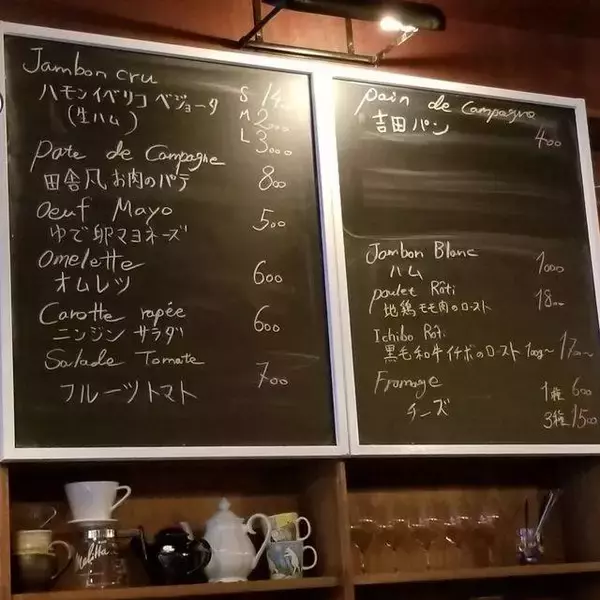 Jambon cru
ハモンイベリコ ベジョータ S 14
(生ハム) M 2000
L 3000
pate de Campagne
田舎風お肉のパテ 800
Oeuf Mayo
ゆで卵マヨネーズ 500
Omelette
オムレツ 600
Carotte rapée
ニンジン サラダ 600
Salade Tomate
フルーツトマト 700
pain de Campagne
吉田パン 400
Jambon Blanc
ハム 1000
poulet Rôti
地鶏モモ肉のロースト 1800
Ichibo Rôti
黒毛和牛イチボのロースト 100g〜 1700〜
Fromage
チーズ 1種 600
3種 1500
Melitta